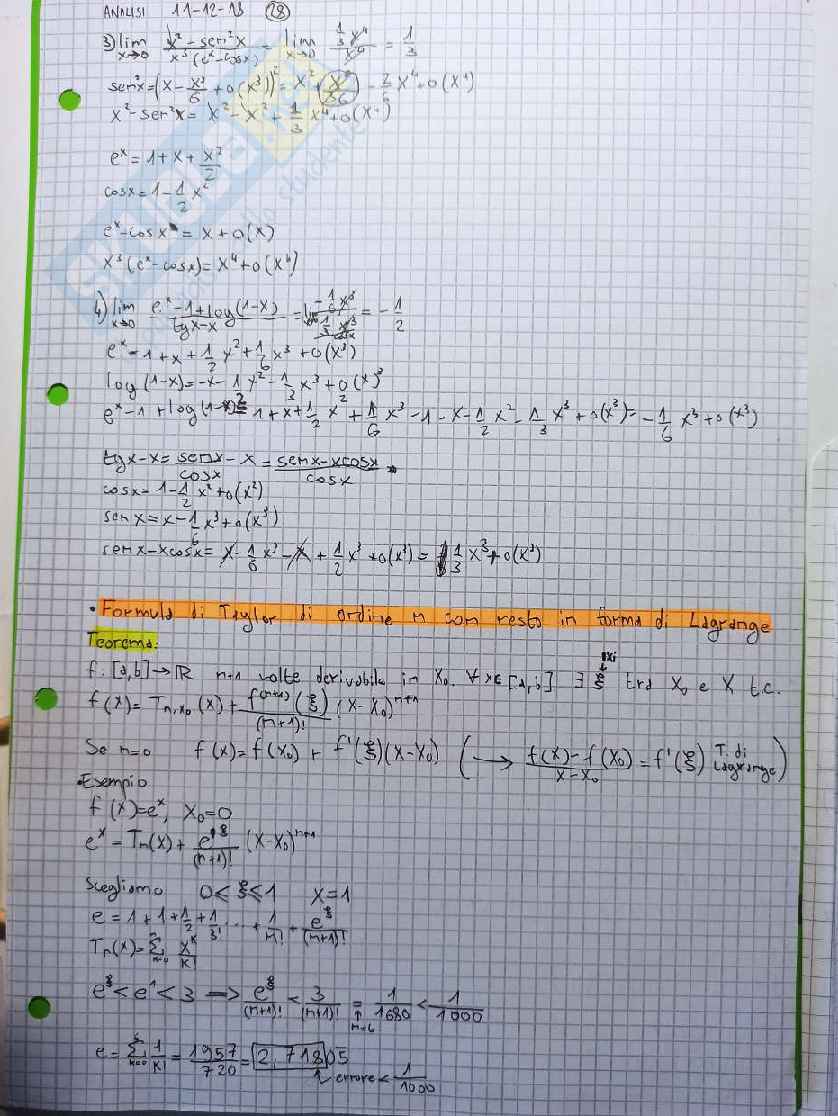 ANALISI 11-12-18 28
3) lim x→0 x² - sen²x / x³(eˣ-cosx) = lim x→0 1/3 x⁴ / x⁴ = 1/3
sen²x = (x - x³/6 + o(x³))² = x² + x⁶/36 - 2/6 x⁴ + o(x⁴)
x² - sen²x = x² - x² + 1/3 x⁴ + o(x⁴)
eˣ = 1 + x + x²/2
cosx = 1 - 1/2 x²
eˣ - cosx = x + o(x)
x³(eˣ-cosx) = x⁴ + o(x⁴)
4) lim x→0 eˣ - 1 + log(1-x) / tgx - x = lim -1/6 x³ / 1/3 x³/cosx = -1/2
eˣ = 1 + x + 1/2 x² + 1/6 x³ + o(x³)
log(1-x) = -x - 1/2 x² - 1/3 x³ + o(x³)
eˣ - 1 + log(1-x) = 1 + x + 1/2 x² + 1/6 x³ - 1 - x - 1/2 x² - 1/3 x³ + o(x³) = -1/6 x³ + o(x³)
tgx - x = senx/cosx - x = senx - xcosx / cosx
cosx = 1 - 1/2 x² + o(x²)
senx = x - 1/6 x³ + o(x³)
senx - xcosx = x - 1/6 x³ - x + 1/2 x³ + o(x³) = 1/3 x³ + o(x³)
• Formula di Taylor di ordine n con resto in forma di Lagrange
Teorema:
xi
f: [a,b] → ℝ n+1 volte derivabile in x₀. ∀ x ∈ [a,b] ∃ ξ tra x₀ e x t.c.
f(x) = Tn,x₀(x) + f⁽ⁿ⁺¹⁾(ξ)/(n+1)! (x-x₀)ⁿ⁺¹
Se n=0 f(x) = f(x₀) + f'(ξ)(x-x₀) (→ f(x)-f(x₀)/x-x₀ = f'(ξ) T. di Lagrange)
• Esempio
f(x) = eˣ, x₀ = 0
eˣ = Tn(x) + e^ξ/(n+1)! (x-x₀)ⁿ⁺¹
Scegliamo 0 < ξ < 1 x = 1
e = 1 + 1 + 1/2 + 1/3! ... + 1/n! + e^ξ/(n+1)!
Tn(x) = Σ xᵏ/k!
e^ξ < e¹ < 3 ⟹ e^ξ/(n+1)! < 3/(n+1)! = 1/1680 < 1/1000
↑ n=6
e = Σ 1/k! = 1957/720 = 2,71805
errore < 1/1000